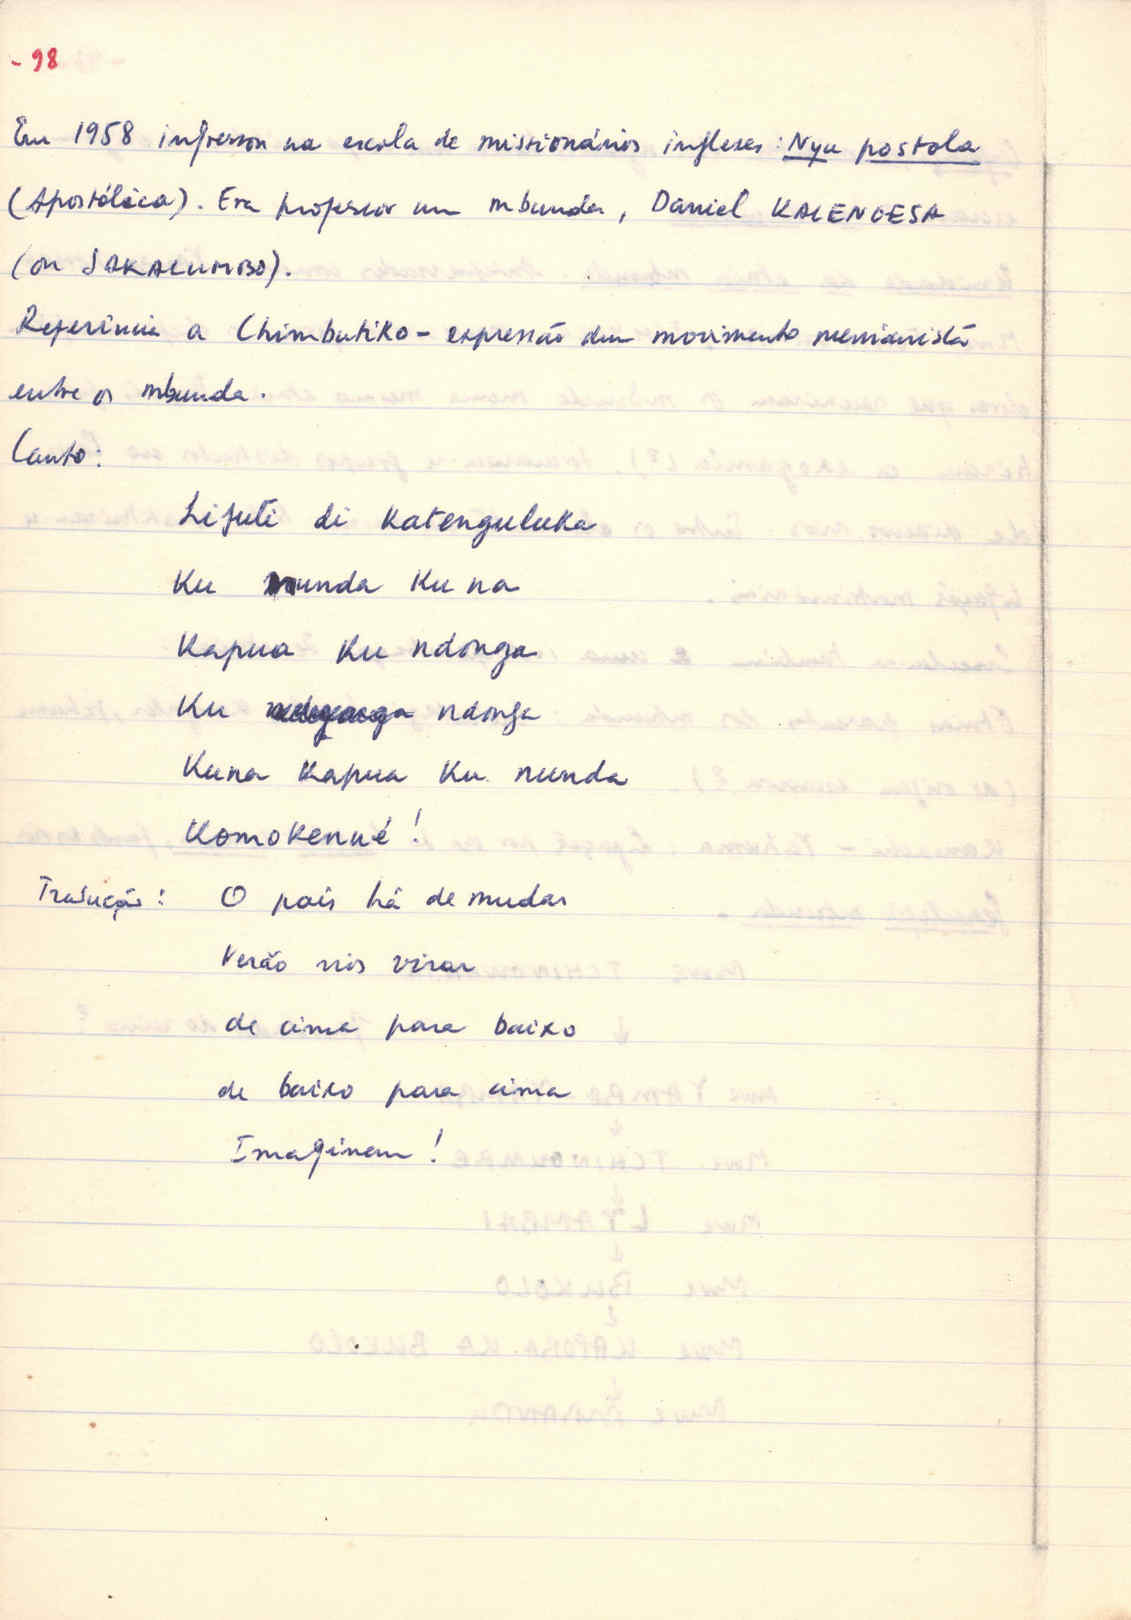 - 98
Em 1958 ingressou na escola de missionários ingleses: Nyu postola
(Apostólica). Era professor um mbunda, Daniel KALENGESA
(ou SAKALUMBO).
Referência a Chimbutiko - expressão dum movimento messianista
entre os mbunda.
Canto:
Lifuti di katenguluka
Ku nunda Ku na
Kapua Ku ndonga
Ku ndonga
Kuna Kapua Ku nunda
Komokenué!
Tradução: O país há de mudar
Verão nós virar
de cima para baixo
de baixo para cima
Imaginem!